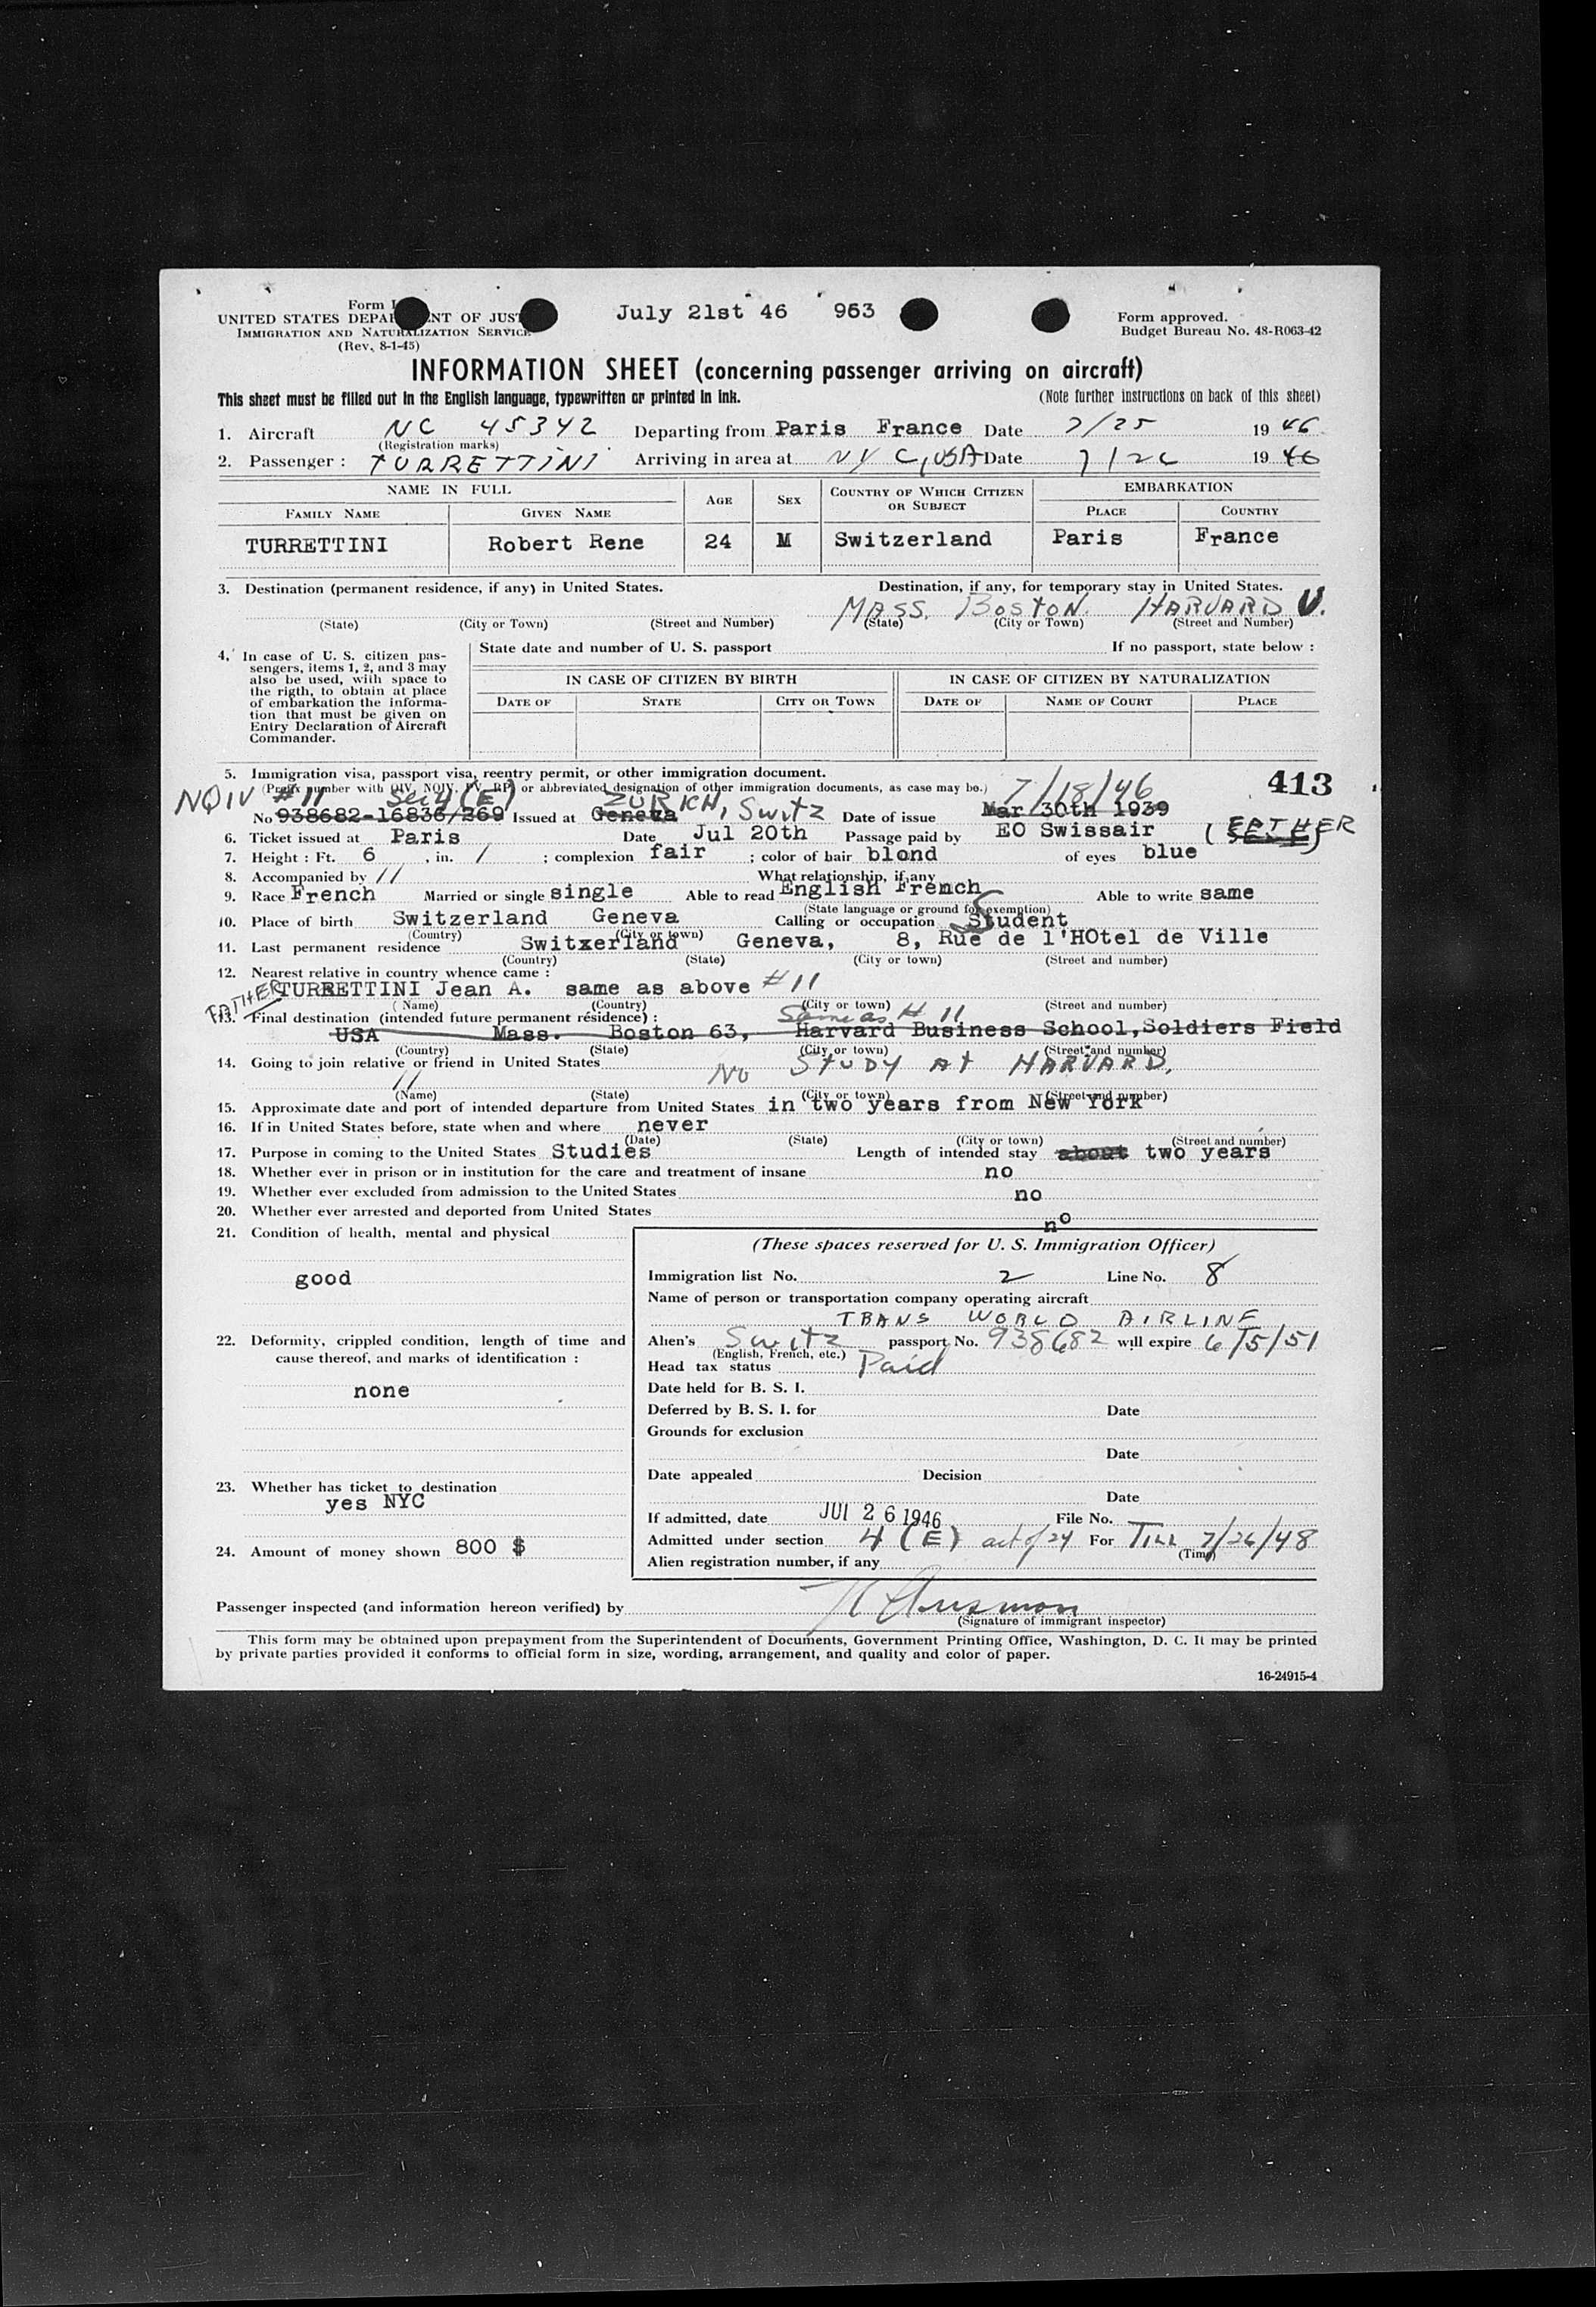 July 21st 46 963
Form I
UNITED STATES DEPA NT OF JUS
IMMIGRATION AND NATURALIZATION SERVICE
(Rev. 8-1-45)
Form approved.
Budget Bureau No. 48-R063-42
INFORMATION SHEET (concerning passenger arriving on aircraft)
This sheet must be filled out in the English language, typewritten or printed in ink. (Note further instructions on back of this sheet)
1. Aircraft NC 45342 Departing from Paris France Date 7/25 1946
(Registration marks)
2. Passenger: TURRETTINI Arriving in area at NYC, USA Date 7/26 1946
NAME IN FULL AGE SEX COUNTRY OF WHICH CITIZEN OR SUBJECT EMBARKATION
FAMILY NAME GIVEN NAME PLACE COUNTRY
TURRETTINI Robert Rene 24 M Switzerland Paris France
3. Destination (permanent residence, if any) in United States. Destination, if any, for temporary stay in United States.
MASS. BOSTON HARVARD U.
(State) (City or Town) (Street and Number) (State) (City or Town) (Street and Number)
4. In case of U. S. citizen pas-
sengers, items 1, 2, and 3 may
also be used, with space to
the rigth, to obtain at place
of embarkation the informa-
tion that must be given on
Entry Declaration of Aircraft
Commander.
State date and number of U. S. passport If no passport, state below :
IN CASE OF CITIZEN BY BIRTH IN CASE OF CITIZEN BY NATURALIZATION
DATE OF STATE CITY OR TOWN DATE OF NAME OF COURT PLACE
5. Immigration visa, passport visa, reentry permit, or other immigration document.
(Prefix number with QIV, NQIV, PV, RP, or abbreviated designation of other immigration documents, as case may be.) 413
NQIV #11 Sec 4(E) ZURICH, Switz 7/18/46
No 938682-16836/269 Issued at Geneva Date of issue Mar 30th 1939
6. Ticket issued at Paris Date Jul 20th Passage paid by EO Swissair (FATHER)
7. Height : Ft. 6 , in. 1 ; complexion fair ; color of hair blond of eyes blue
8. Accompanied by // What relationship, if any
9. Race French Married or single single Able to read English French Able to write same
(State language or ground for exemption)
10. Place of birth Switzerland Geneva Calling or occupation Student
(Country) (City or town)
11. Last permanent residence Switxerland Geneva, 8, Rue de l'HOtel de Ville
(Country) (State) (City or town) (Street and number)
12. Nearest relative in country whence came :
FATHER TURRETTINI Jean A. same as above #11
(Name) (Country) (City or town) (Street and number)
13. Final destination (intended future permanent résidence) : Same as # 11
USA Mass. Boston 63, Harvard Business School,Soldiers Field
(Country) (State) (City or town) (Street and number)
14. Going to join relative or friend in United States No STUDY AT HARVARD.
//
(Name) (State) (City or town) (Street and number)
15. Approximate date and port of intended departure from United States in two years from New York
16. If in United States before, state when and where never
(Date) (State) (City or town) (Street and number)
17. Purpose in coming to the United States Studies Length of intended stay about two years
18. Whether ever in prison or in institution for the care and treatment of insane no
19. Whether ever excluded from admission to the United States no
20. Whether ever arrested and deported from United States no
21. Condition of health, mental and physical
good
22. Deformity, crippled condition, length of time and
cause thereof, and marks of identification :
none
23. Whether has ticket to destination
yes NYC
24. Amount of money shown 800 $
(These spaces reserved for U. S. Immigration Officer)
Immigration list No. 2 Line No. 8
Name of person or transportation company operating aircraft
TRANS WORLD AIRLINE
Alien's Switz passport No. 938682 will expire 6/5/51
(English, French, etc.)
Head tax status Paid
Date held for B. S. I.
Deferred by B. S. I. for Date
Grounds for exclusion
Date
Date appealed Decision
Date
If admitted, date JUL 26 1946 File No.
Admitted under section 4 (E) act of 24 For TILL 7/26/48
(Time)
Alien registration number, if any
Passenger inspected (and information hereon verified) by
(Signature of immigrant inspector)
This form may be obtained upon prepayment from the Superintendent of Documents, Government Printing Office, Washington, D. C. It may be printed
by private parties provided it conforms to official form in size, wording, arrangement, and quality and color of paper.
16-24915-4